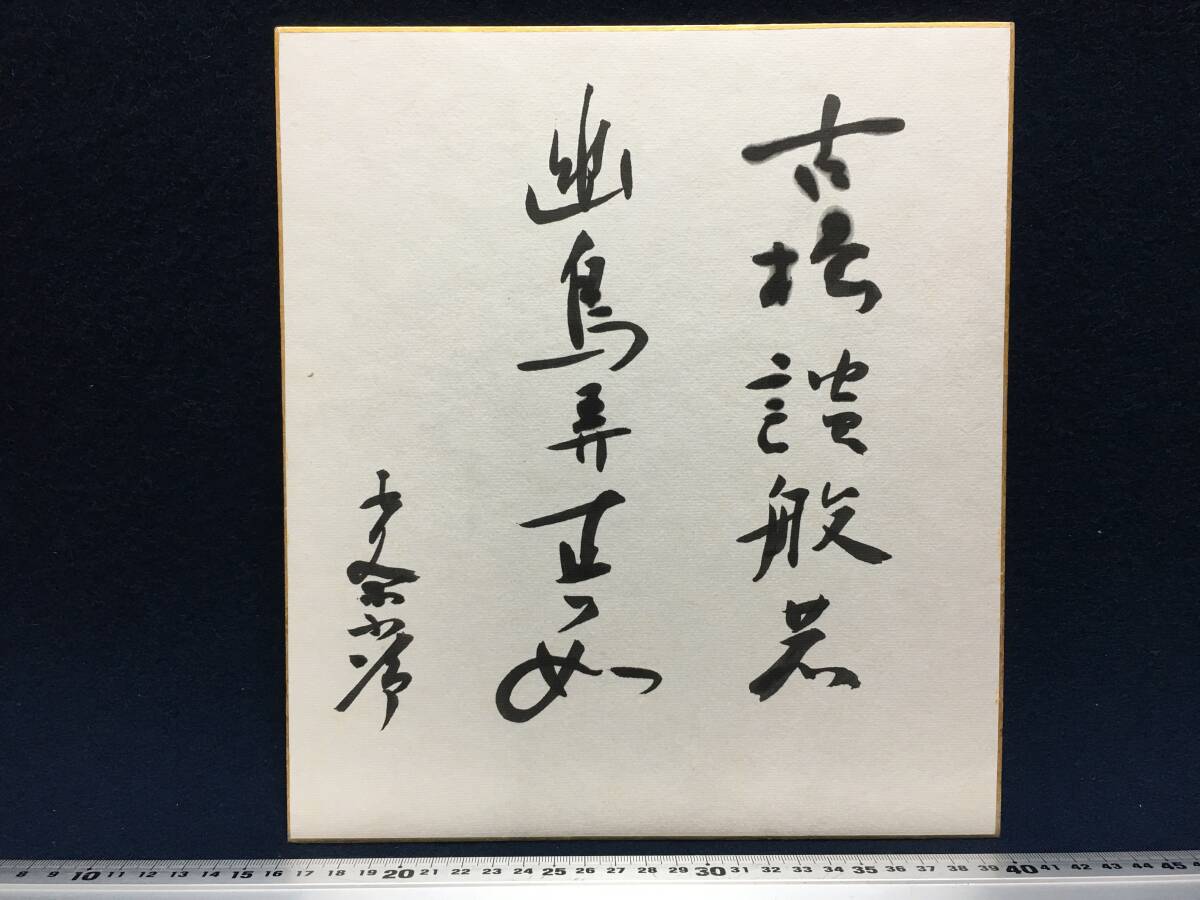 古松談般若
幽鳥弄真如
8 9 10 11 12 13 14 15 16 17 18 19 20 21 22 23 24 25 26 27 28 29 30 31 32 33 34 35 36 37 38 39 40 41 42 43 44 45